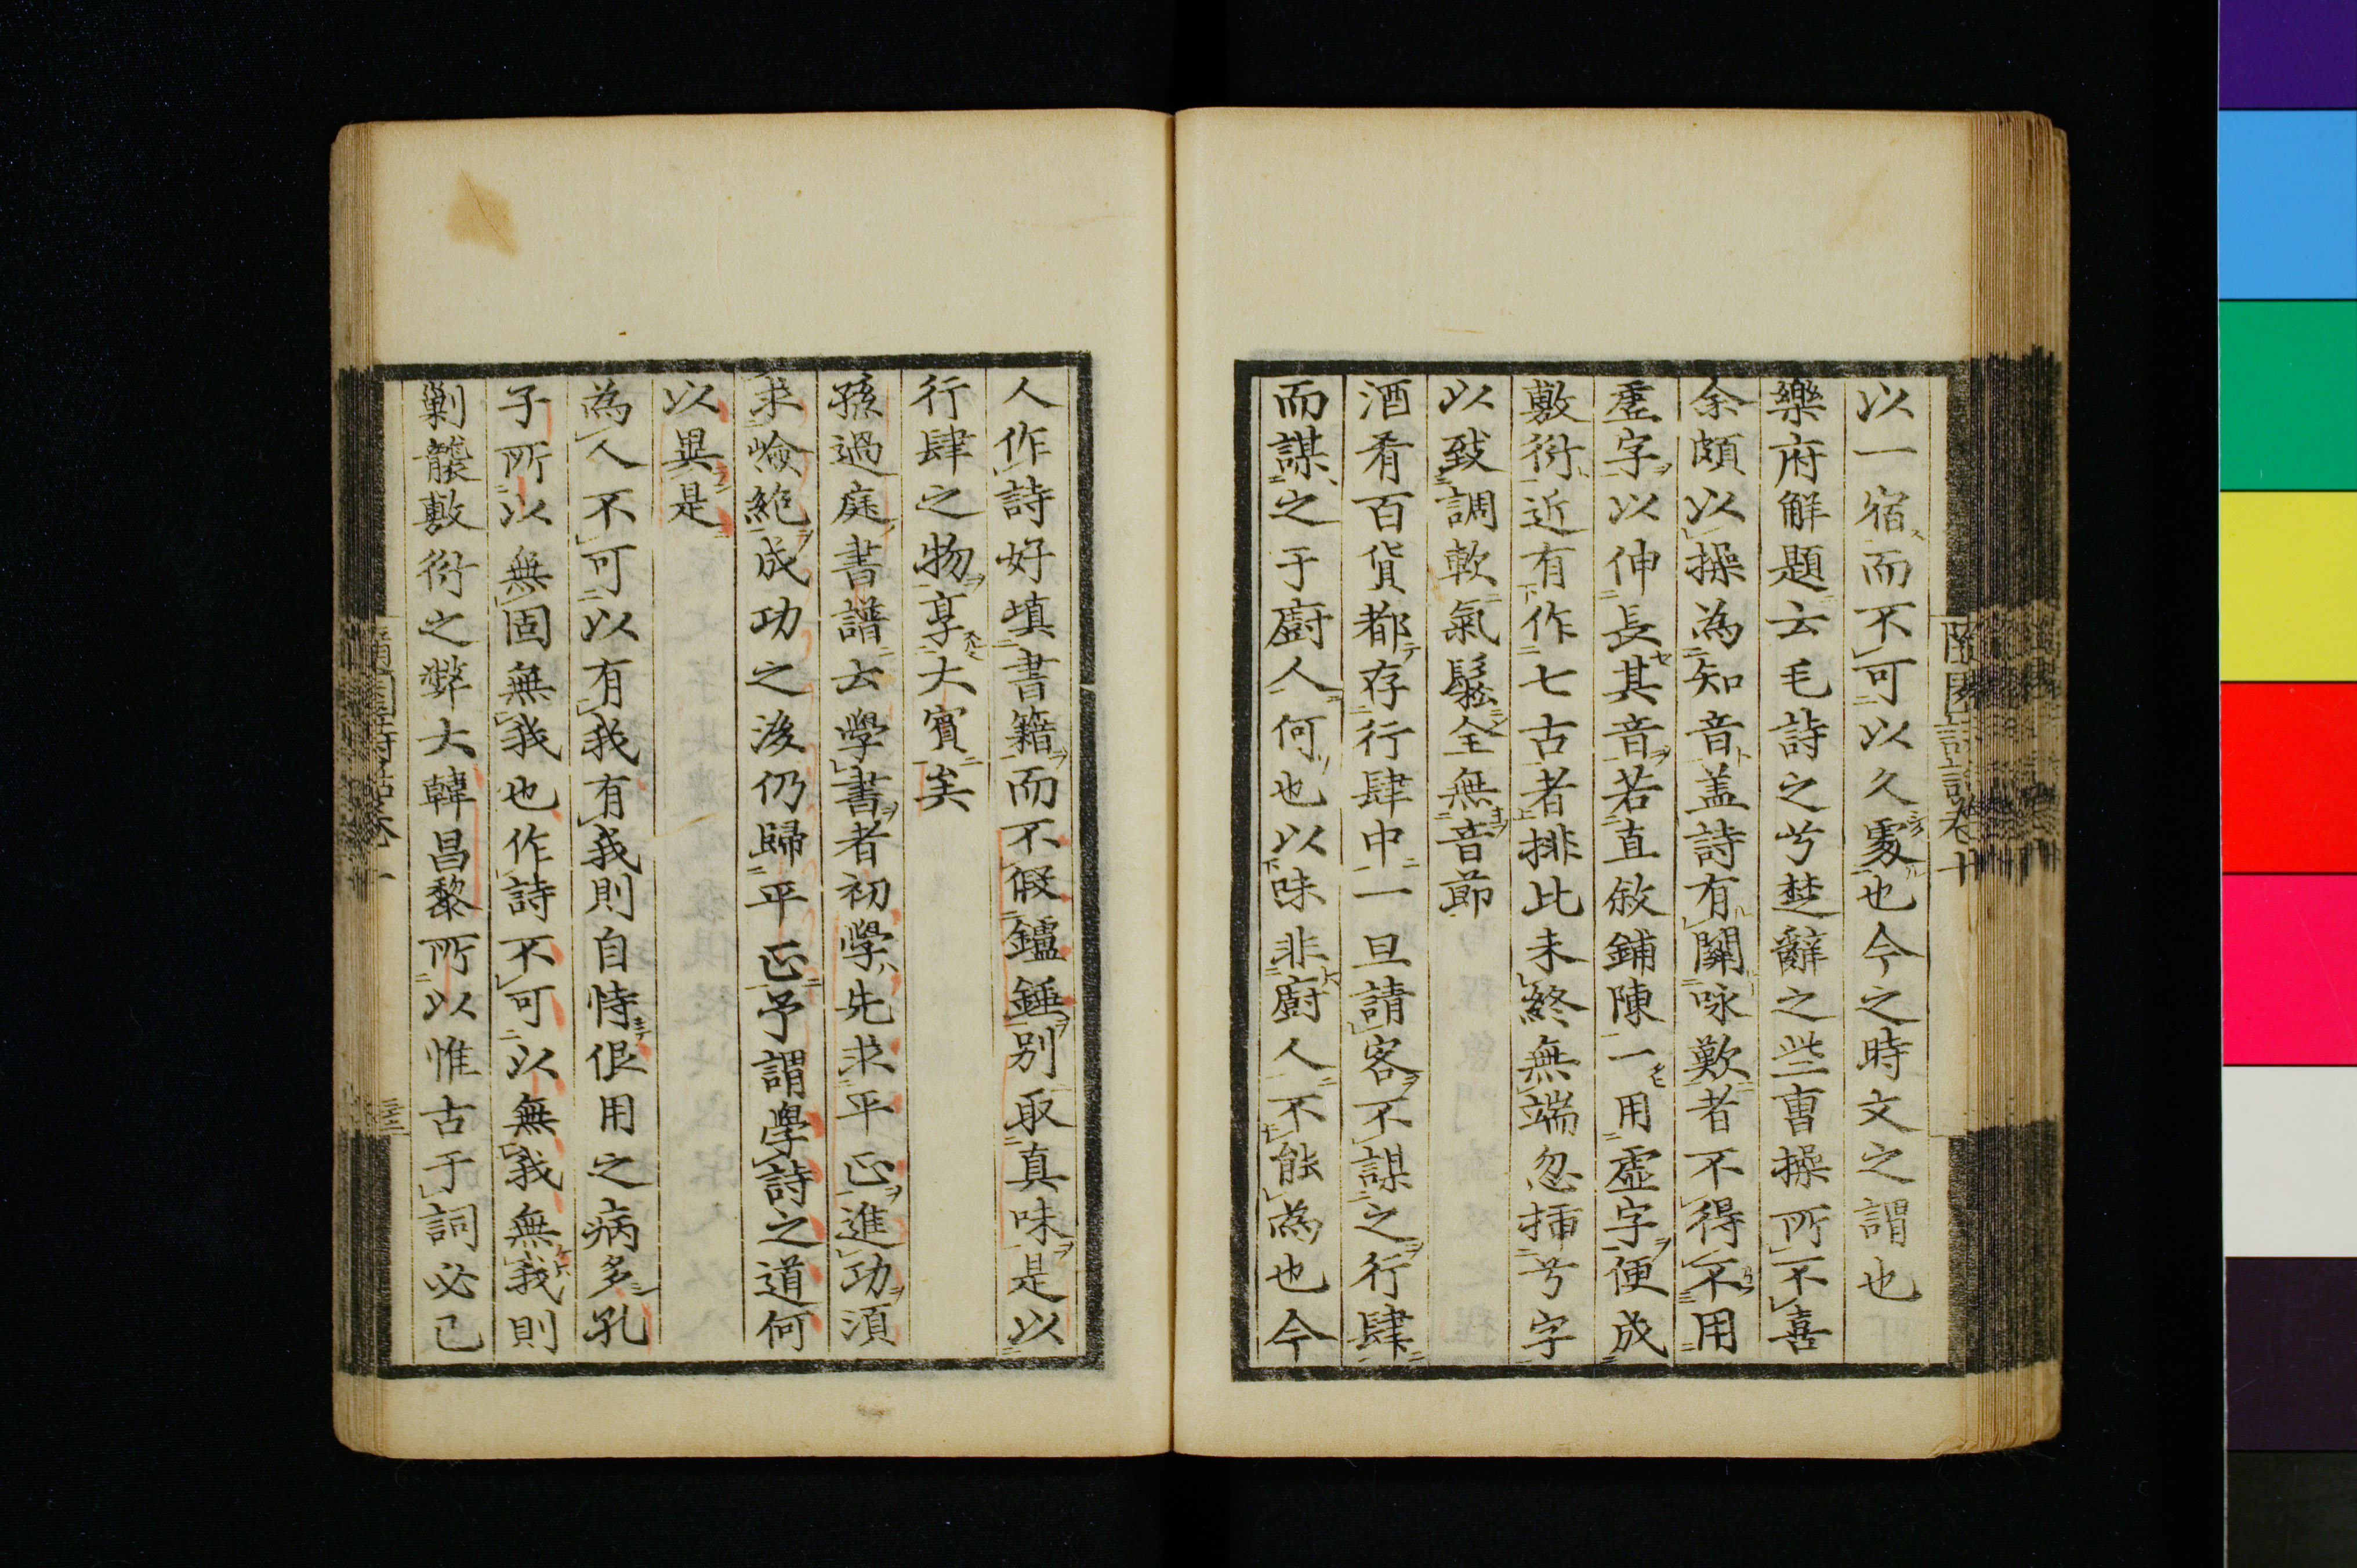 以一宿而不可以久處也今之時文之謂也
樂府解題云毛詩之兮楚辭之些曹操所不喜
余頗以操為知音盖詩有關咏歎者不得不用
虛字以伸長其音若直敘鋪陳一用虛字便成
敷衍近有作七古者排比未終無端忽插兮字
以致調軟氣鬆全無音節
酒肴百貨都存行肆中一旦請客不謀之行肆
而謀之于廚人何也以味非廚人不能為也今
人作詩好填書籍而不假鑪錘別取真味是以
行肆之物享大賓矣
孫過庭書譜云學書者初學先求平正進功須
求嶮絶成功之後仍歸平正予謂學詩之道何
以異是
為人不可以有我有我則自恃佷用之病多孔
子所以無固無我也作詩不可以無我無我則
剿襲敷衍之弊大韓昌黎所以惟古于詞必己